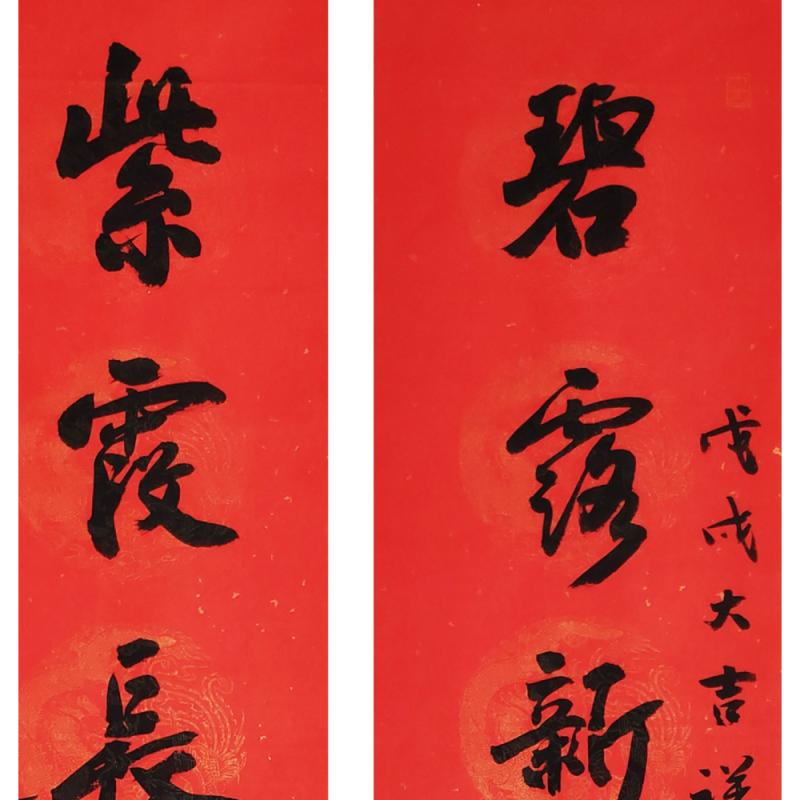 戊戌大吉祥
碧露新
紫霞長